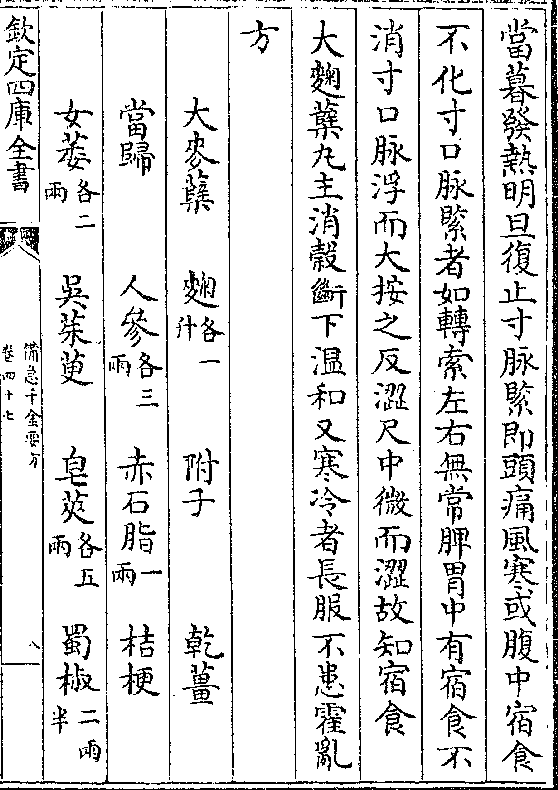 當暮發熱明旦復止寸脉緊即頭痛風寒或腹中宿食
不化寸口脉緊者如轉索左右無常脾胃中有宿食不
消寸口脉浮而大按之反澀尺中微而澀故知宿食
大麴蘗丸主消穀斷下温和又寒冷者長服不患霍亂
方
大麥蘗 麴各一升 附子 乾薑
當歸 人參各三兩 赤石脂一兩 桔梗
女萎各二兩 吳茱萸 皂莢各五兩 蜀椒二兩半
欽定四庫全書
備急千金要方
卷四十七
八